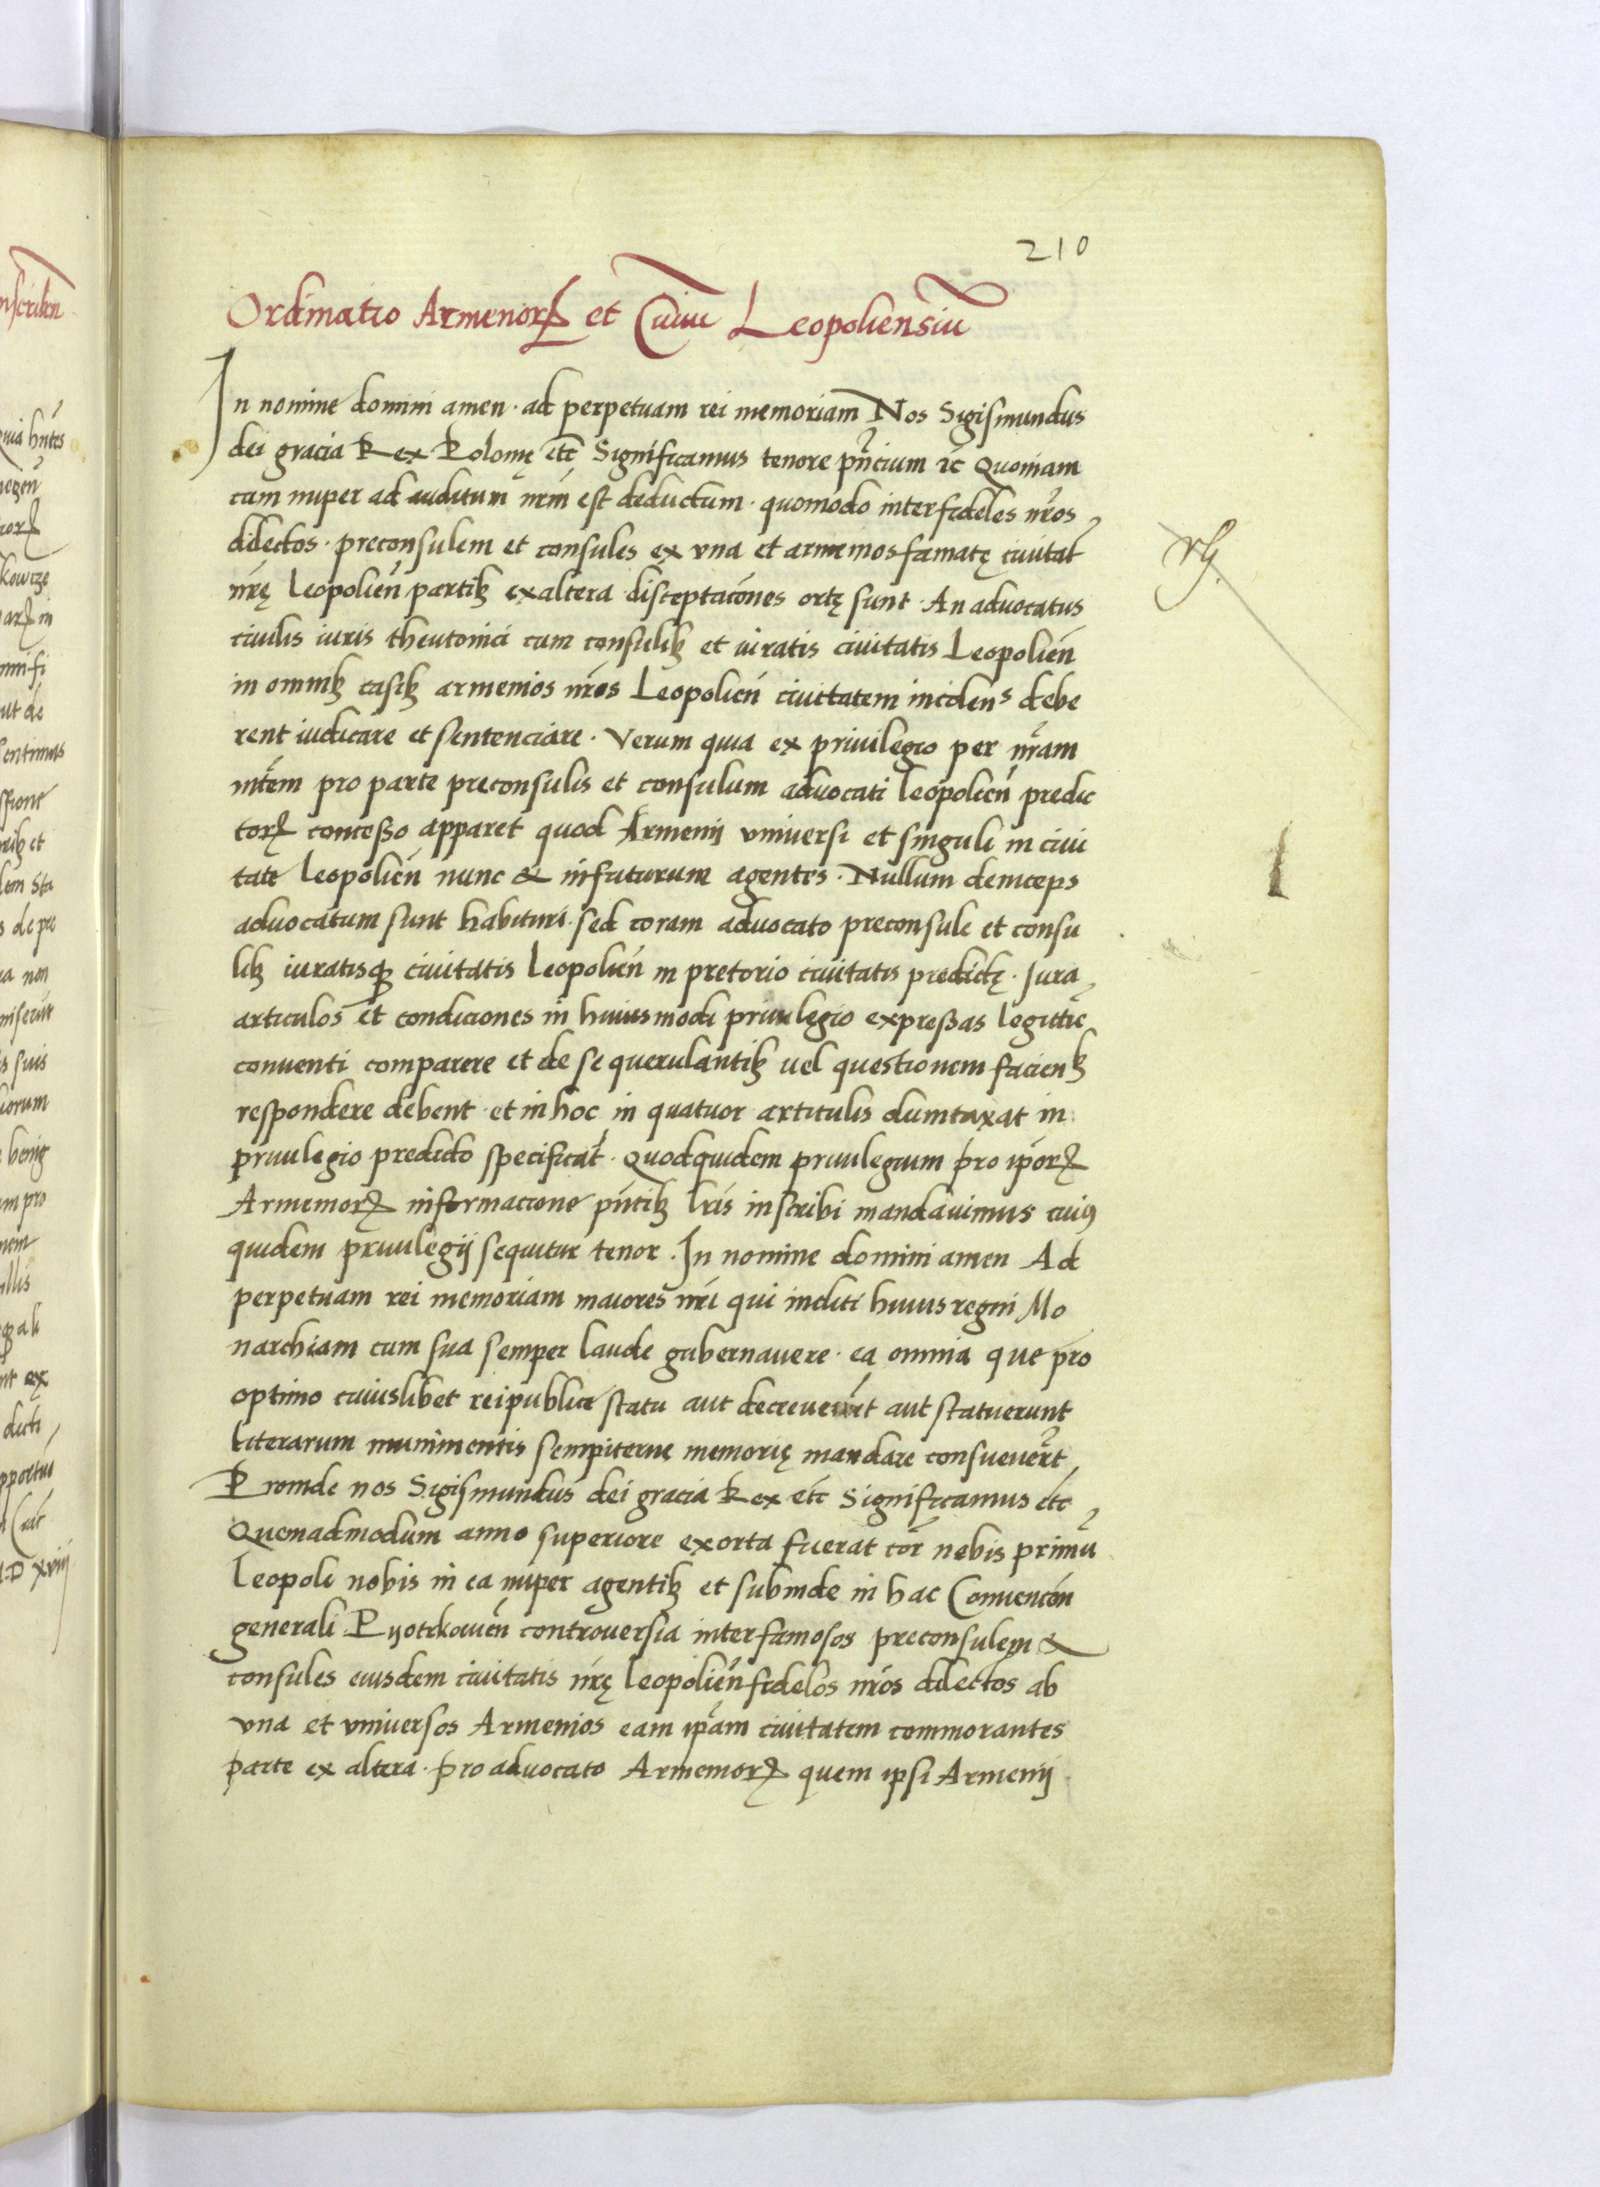 210
Ordinatio Armenorꝝ et Ciuiū Leopoliensiū
In nomine domini amen · ad perpetuam rei memoriam Nos Sigismundus
dei gracia Rex Polonię etc̄ Significamus tenore pn̄cium ꝛc̄ Quoniam
cum nuper ad auditum nr̄m est deductum · quomodo inter fideles nr̄os
dilectos · preconsulem et consules ex vna et armenios famatę ciuitat̄
nr̄ę Leopolien̄ partibꝫ ex altera disceptac̄ones ortę sunt · An advocatus
ciuilis iuris theutonici cum consulibꝫ et iuratis ciuitatis Leopolien̄
in omnibꝫ casibꝫ armenios nr̄os Leopolien̄ ciuitatem incolen̄s debe
rent iudicare et sentenciare · Verum quia ex priuilegio per nr̄am
m̄tem pro parte preconsulis et consulum advocati leopolien̄ predic
torꝝ concesso apparet quod Armenij vniuersi et singuli in ciui
tate leopolien̄ nunc & infuturum agentes · Nullum deinceps
advocatum sunt habituri · sed coram advocato preconsule et consu
libꝫ iuratisqꝫ ciuitatis leopolien̄ in pretorio ciuitatis predictę · Iura
articulos et condiciones in huiusmodi priuilegio expressas legittīe
conuenti comparere et de se querulantibꝫ uel questionem facienbꝫ
respondere debent · et in hoc in quatuor articulis dumtaxat in
priuilegio predicto specificat̄ · Quodquidem priuilegium pro ip̄orꝝ
Armeniorꝝ informacione pn̄tibꝫ lr̄is inscribi mandauimus cuiꝰ
quidem priuilegij sequitur tenor · In nomine domini amen Ad
perpetuam rei memoriam maiores nr̄i qui incliti huius regni Mo
narchiam cum sua semper laude gubernauere · ea omnia que pro
optimo cuiuslibet reipublice statu aut decreuerūt aut statuerunt
literarum munimentis sempiternę memorię mandare consueuer̄t
Proinde nos Sigismundus dei gracia Rex etc̄ Significamus etc̄
Quemadmodum anno superiore exorta fuerat cor̄ nobis primū
leopoli nobis in ea nuper agentibꝫ et subinde in hac Conuenc̄on
generali Pyotrkouien̄ controuersia inter famosos preconsulem &
consules eiusdem ciuitatis nr̄ę leopolien̄ fideles nr̄os dilectos ab
vna et vniuersos Armenios eam ip̄am ciuitatem commorantes
parte ex altera · pro advocato Armeniorꝝ quem ipsi Armenij